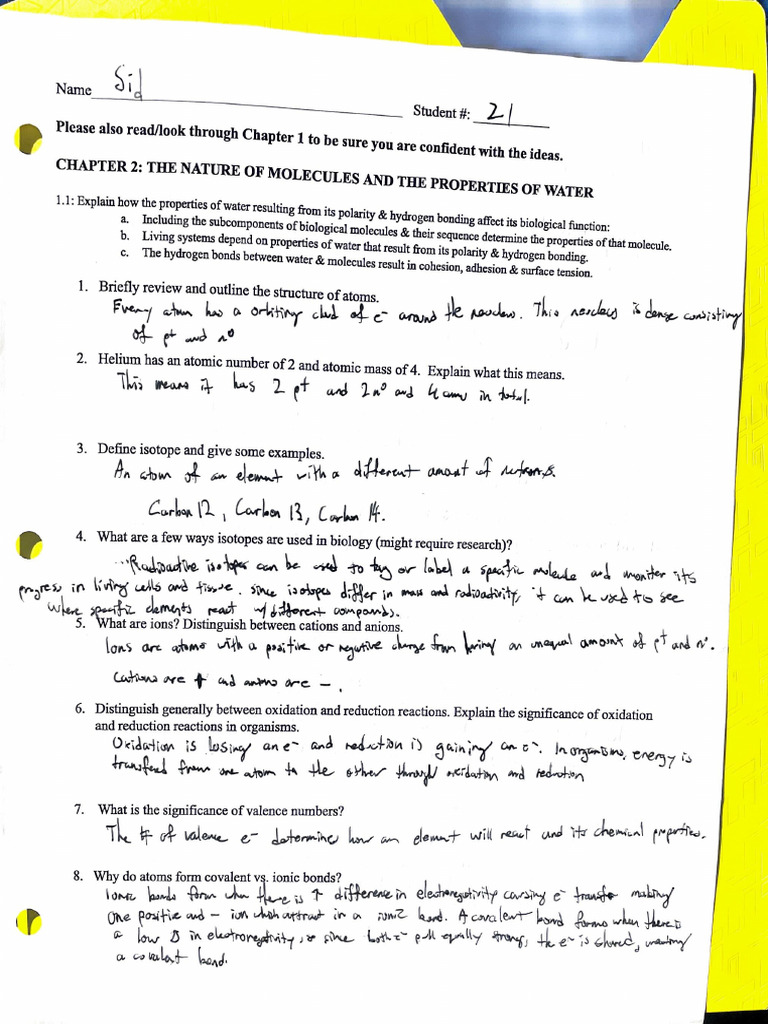 Name Sid
Student #: 21
Please also read/look through Chapter 1 to be sure you are confident with the ideas.
CHAPTER 2: THE NATURE OF MOLECULES AND THE PROPERTIES OF WATER
1.1: Explain how the properties of water resulting from its polarity & hydrogen bonding affect its biological function:
a. Including the subcomponents of biological molecules & their sequence determine the properties of that molecule.
b. Living systems depend on properties of water that result from its polarity & hydrogen bonding.
c. The hydrogen bonds between water & molecules result in cohesion, adhesion & surface tension.
1. Briefly review and outline the structure of atoms.
Every atom has a orbiting cloud of e⁻ around the . This is dense consisting
of p⁺ and n⁰
2. Helium has an atomic number of 2 and atomic mass of 4. Explain what this means.
This means it has 2 p⁺ and 2n⁰ and 4 amu in total.
3. Define isotope and give some examples.
An atom of an element with a different amount of
Carbon 12, Carbon 13, Carbon 14.
4. What are a few ways isotopes are used in biology (might require research)?
Radioactive isotopes can be used to tag or label a specific molecule and moniter its
progress in living cells and tissue. since isotopes differ in mass and radioactivity, it can be used to see
where specific elements react w/ different compounds.
5. What are ions? Distinguish between cations and anions.
Ions are atoms with a positive or negative charge from having an unequal amount of p⁺ and n⁰.
Cations are + and anions are -.
6. Distinguish generally between oxidation and reduction reactions. Explain the significance of oxidation
and reduction reactions in organisms.
Oxidation is losing an e⁻ and reduction is gaining an e⁻. In organisms, energy is
from one atom to the other through oxidation and reduction
7. What is the significance of valence numbers?
The # of valence e⁻ determine how an element will react and its chemical properties.
8. Why do atoms form covalent vs. ionic bonds?
Ionic bonds form when there is ↑ difference in electronegativity causing e⁻ making
one positive and - ion which attract in a bond. A covalent bond forms when there is
a low Δ in electronegativity, since both e⁻ pull equally strong, the e⁻ is shared,
a covalent bond.